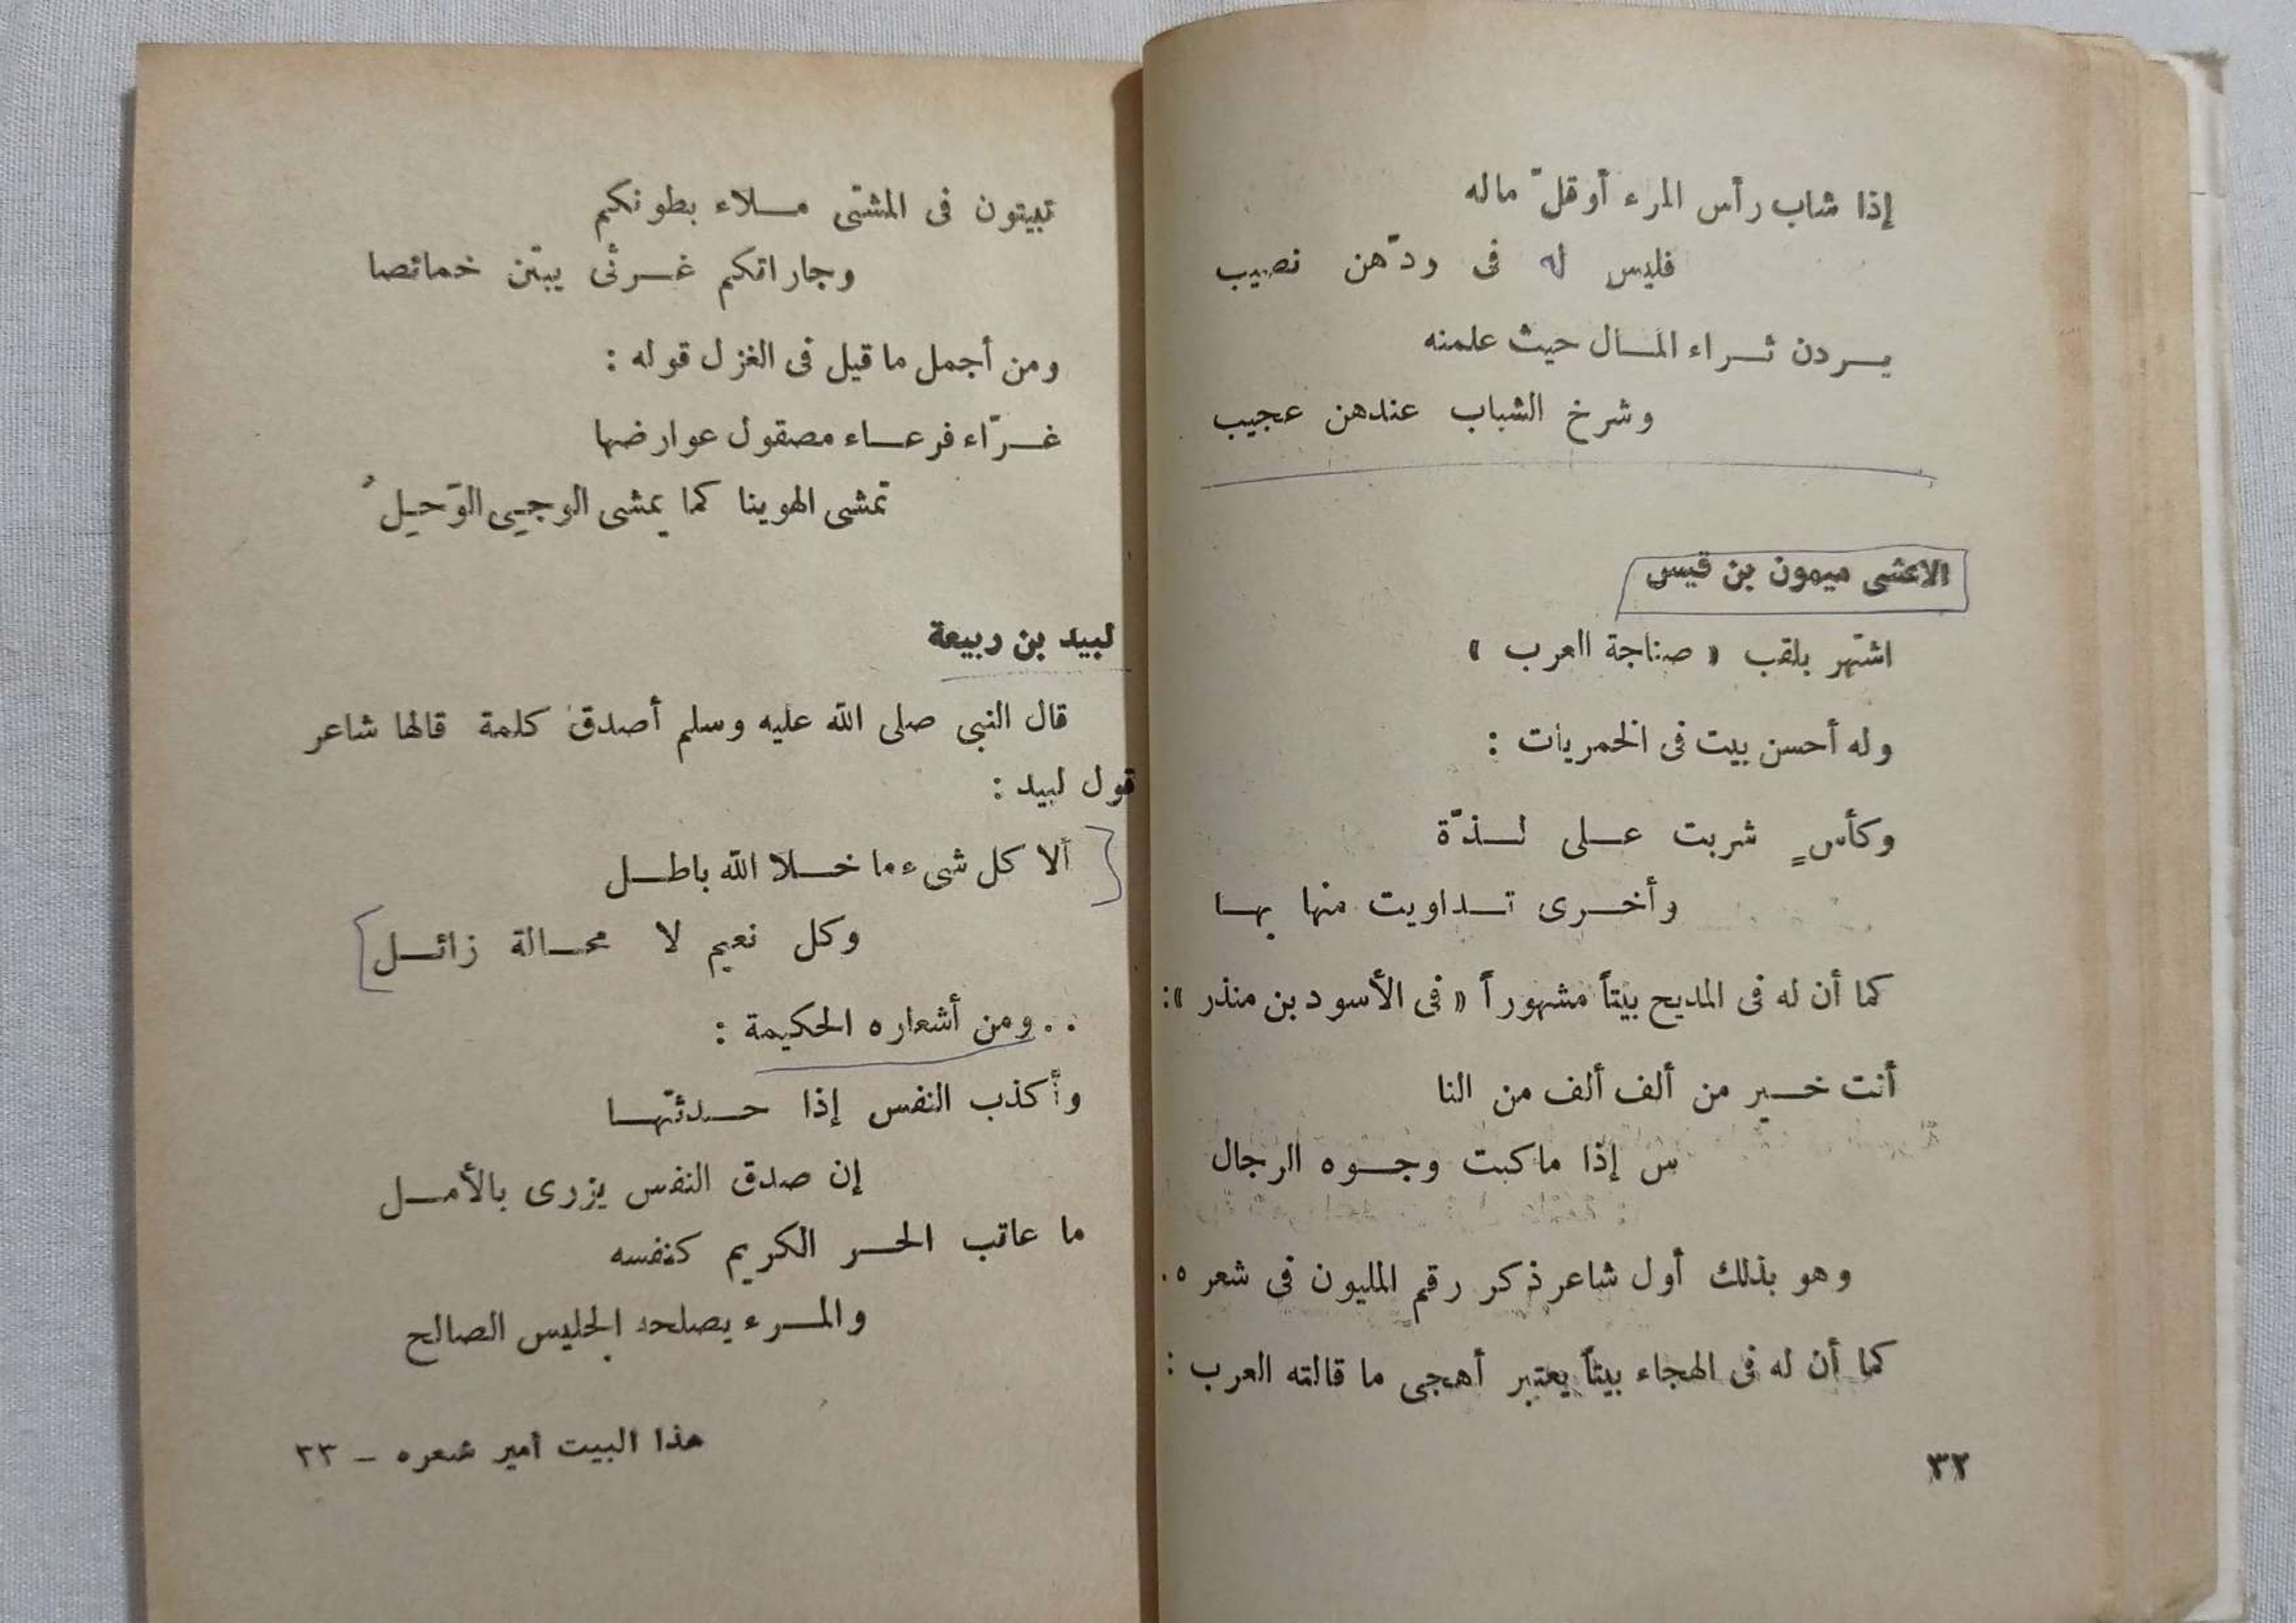 إذا شاب رأس المرء أو قلّ ماله
فليس له فى ودّهن نصيب
يــردن ثــراء المــال حيث علمنه
وشرخ الشباب عندهن عجيب
الاعشى ميمون بن قيس
اشتهر بلقب « صناجة العرب »
وله أحسن بيت فى الخمريات :
وكأسٍ شربت عــلى لــذّة
وأخــرى تــداويت منها بهــا
كما أن له فى المديح بيتاً مشهوراً « فى الأسود بن منذر »:
أنت خــير من ألف ألف من النا
س إذا ما كبت وجــوه الرجال
وهو بذلك أول شاعر ذكر رقم المليون فى شعره .
كما أن له فى الهجاء بيتاً يعتبر أهجى ما قالته العرب :
٣٢
تبيتون فى المشتى مــلاء بطونكم
وجاراتكم غــرثى يبتن خمائصا
ومن أجمل ما قيل فى الغزل قوله :
غــرّاء فرعــاء مصقول عوارضها
تمشى الهوينا كما يمشى الوجيى الوَحيلُ
لبيد بن ربيعة
قال النبى صلى الله عليه وسلم أصدق كلمة قالها شاعر
قول لبيد :
ألا كل شىء ما خــلا الله باطــل
وكل نعيم لا محــالة زائــل
. . ومن أشعاره الحكيمة :
وأكذب النفس إذا حــدثتهــا
إن صدق النفس يزرى بالأمــل
ما عاتب الحــر الكريم كنفسه
والمــرء يصلحه الجليس الصالح
هذا البيت أمير شعره – ٣٣